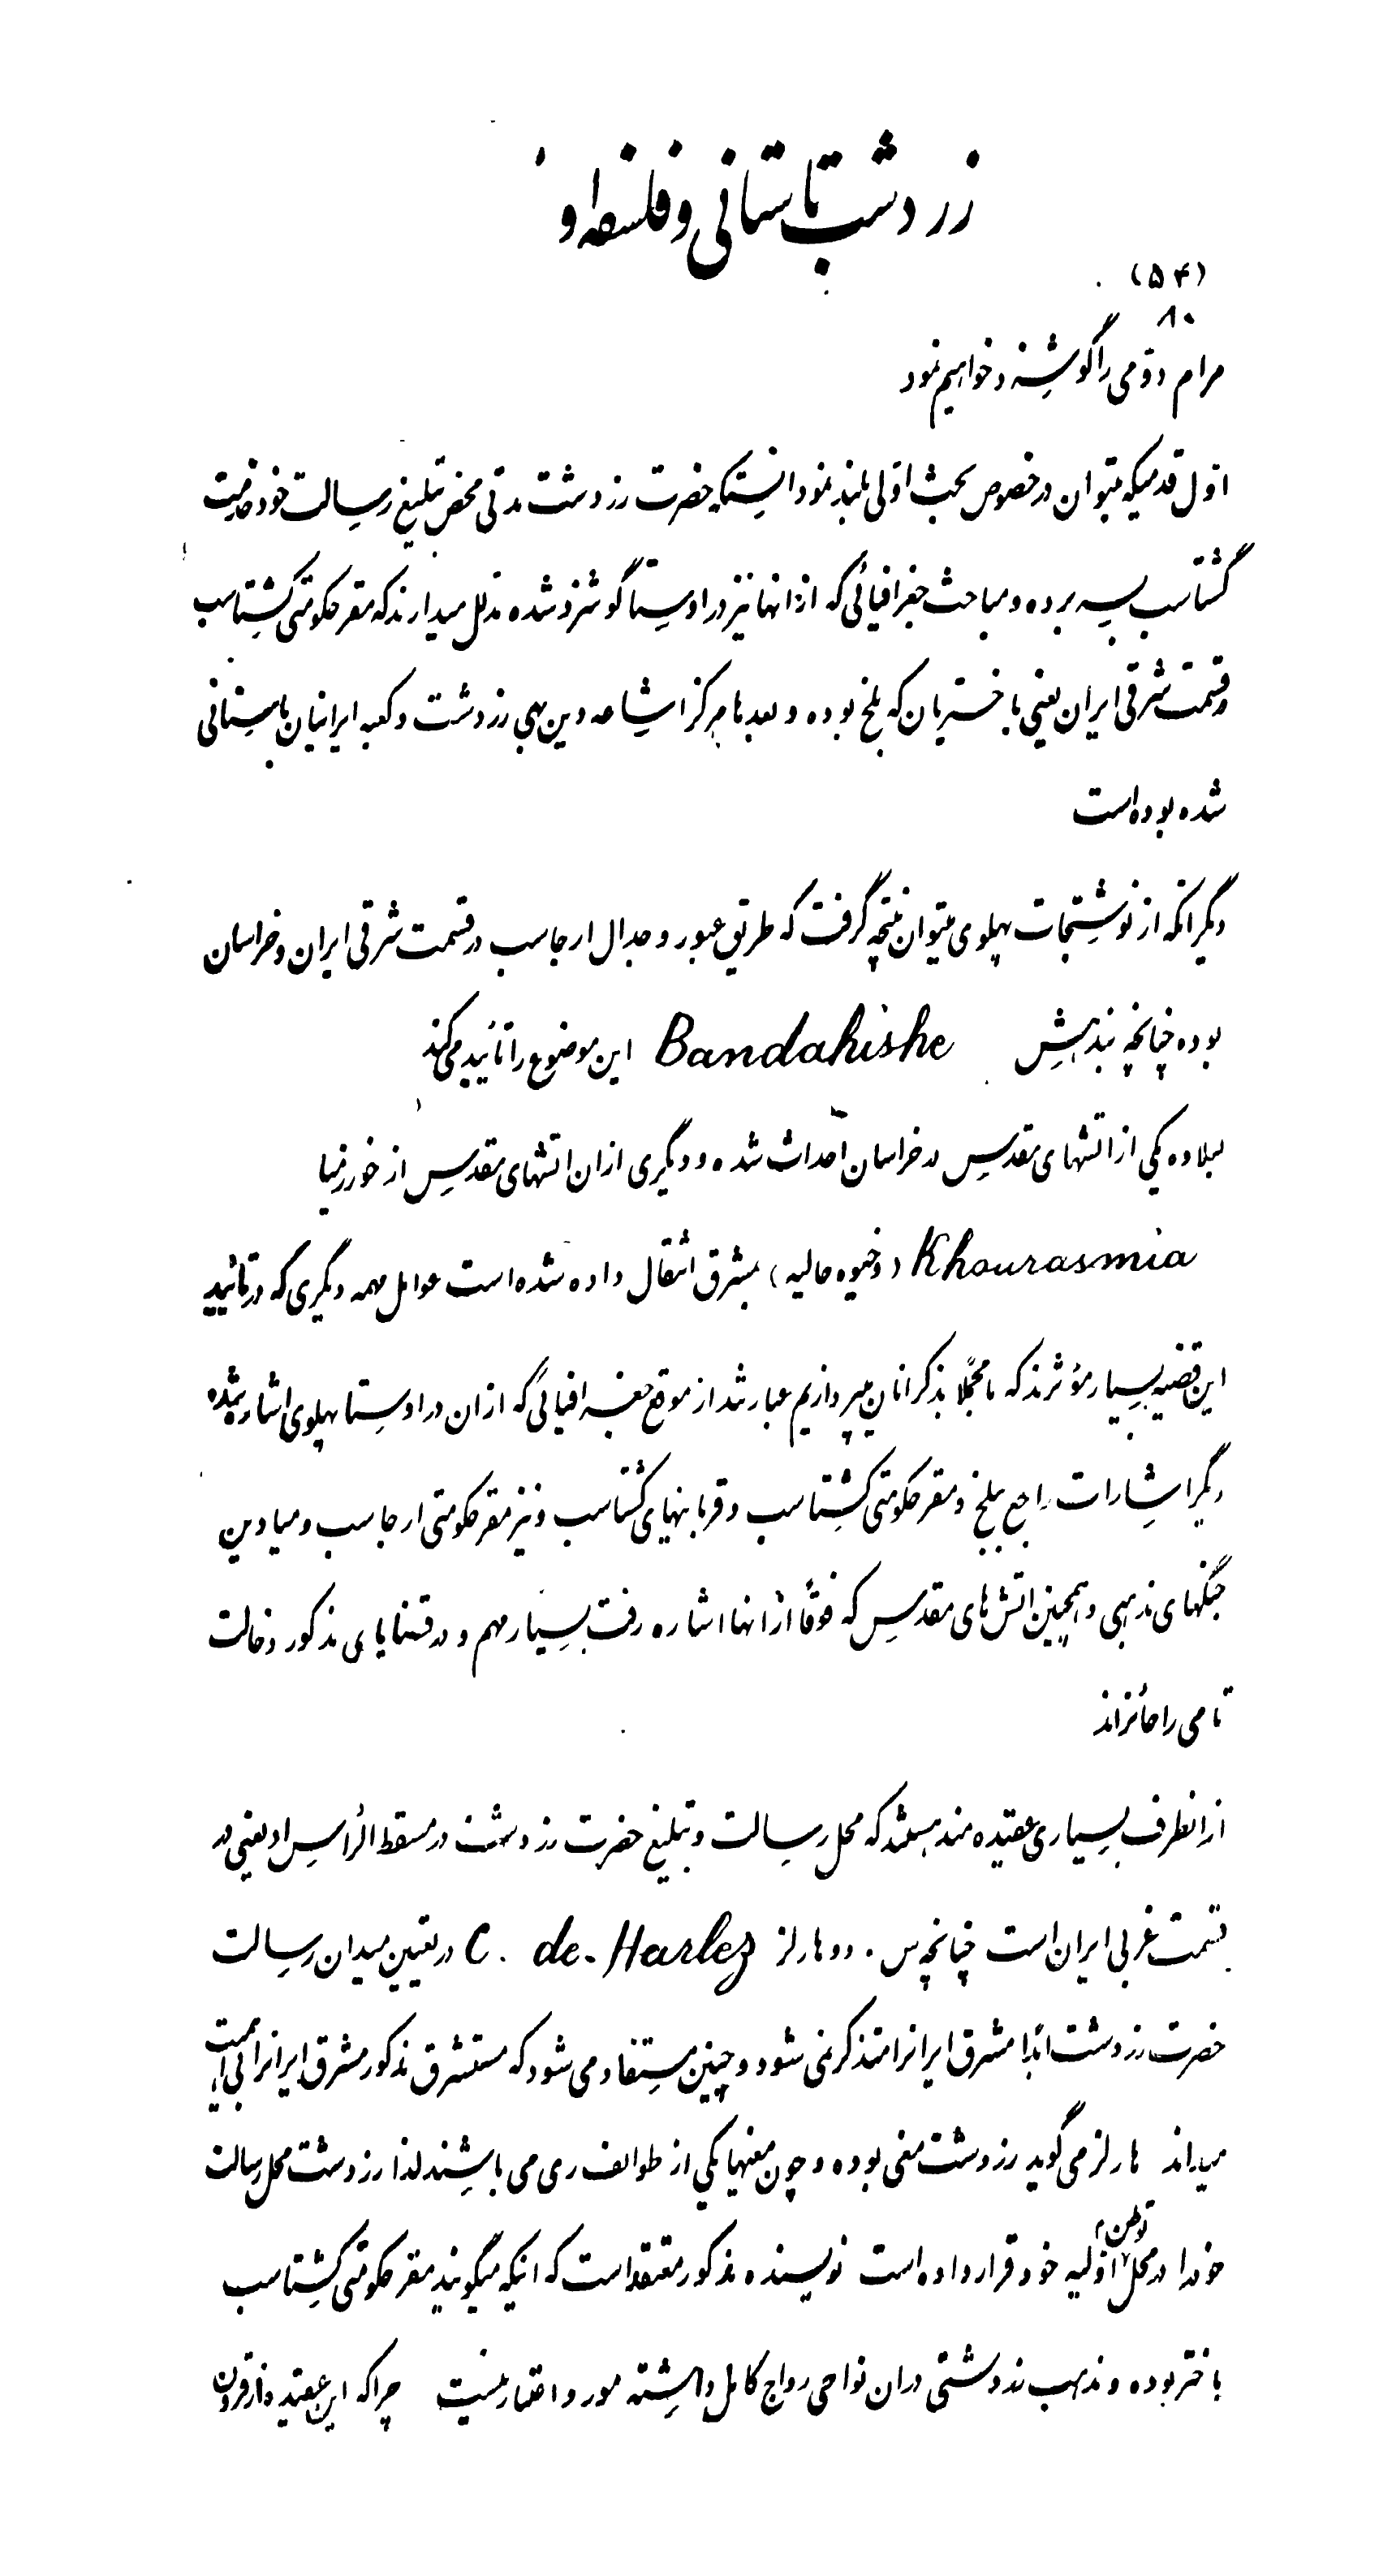 زردشت باستانی و فلسفه او
(۵۴)
۸۰
مرام دومی را گوشزد خواهیم نمود
اول قدمیکه میتوان در خصوص بحث اولی بلند نمود اینستکه حضرت زردشت مدتی محض تبلیغ رسالت خود خدمت
گشتاسب بسر برده و مباحث جغرافیائی که از آنها نیز در اوستا گوشزد شده مدلل میدارند که مقر حکومتی گشتاسب
در قسمت شرقی ایران یعنی باختریان که بلخ بوده و بعدها مرکز اشاعه دین بهی زردشت و کعبه ایرانیان باستانی
شده بوده است
دیگر انکه از نوشتجات پهلوی میتوان نتیجه گرفت که طریق عبور و جدال ارجاسب در قسمت شرقی ایران و خراسان
بوده چنانچه بندهش Bandahishe این موضوع را تائید می کند
بعلاوه یکی از اتشهای مقدس در خراسان احداث شده و دیگری از ان اتشهای مقدس از خورزمیا
Khourasmia (و خیوه حالیه) بمشرق انتقال داده شده است عوامل مهمه دیگری که در تائید
این قضیه بسیار مؤثرند که ما مجملا بذکر انان میپردازیم عبارتند از موقع جغرافیائی که از ان در اوستا پهلوی اشاره شده
دیگر اشارات راجع ببلخ و مقر حکومتی گشتاسب و قربانیهای گشتاسب و نیز مقر حکومتی ارجاسب و میادین
جنگهای مذهبی و همچنین اتش های مقدس که فوقاً از انها اشاره رفت بسیار مهم و در قضایای مذکور دخالت
تامی را حائزاند
از انطرف بسیاری عقیده مند هستند که محل رسالت و تبلیغ حضرت زردشت در مسقط الرأس او یعنی در
قسمت غربی ایران است چنانچه س . دو هارلز C. de-Harlez در تعیین میدان رسالت
حضرت زردشت ابداً مشرق ایرانرا متذکر نمی شود و چنین مستفاد می شود که مستشرق مذکور مشرق ایرانرا بی اهمیت
میداند هارلز می گوید زردشت مغی بوده و چون مغهها یکی از طوائف ری می باشند لذا زردشت محل رسالت
خود را در محل توطن اولیه خود قرار داده است نویسنده مذکور معتقد است که اینکه میگویند مقر حکومتی گشتاسب
باختر بوده و مذهب زردشتی در ان نواحی رواج کامل داشته مورد اعتبار نیست چرا که این عقیده از قرون